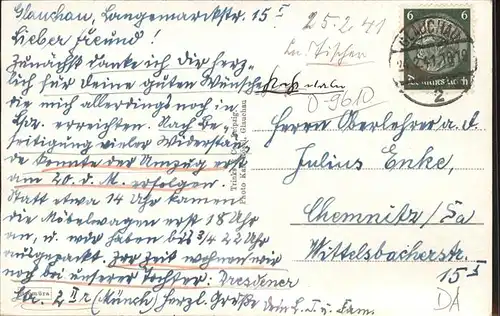 Glauchau, Langemarckstr. 15 I
Lieber Freund!
Zunächst danke ich dir herz-
lich für deine guten Wünsche,
die mich allerdings noch in
erreichten. Nach Be-
seitigung vieler Widerstän-
de konnte der Umzug erst
am 20. d. M. erfolgen.
Statt etwa 14 Uhr kamen
die Möbelwagen erst 18 Uhr
an, u. wir haben bis 3/4 22 Uhr
ausgepackt. Zur Zeit wohnen wir
noch bei unserer Tochter: Dresdener
Str. 2 II r (Münch) Herzl. Grüße dein
u. Fam.
25.2.41
D-9610
6
GLAUCHAU
2
Deutsches Reich
Herrn Oberlehrer a. d.
Julius Enke,
Chemnitz/Sa
Wittelsbacherstr.
15 I
DA
Trinks
Leipzig
Photo
Glauchau